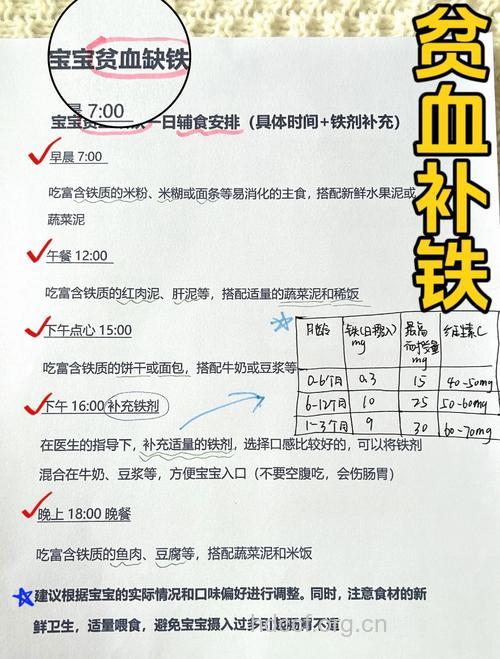 宝宝贫血缺铁
贫血补铁
晨 7:00
宝宝 一日辅食安排（具体时间+铁剂补充）
早晨 7:00
吃富含铁质的米粉、米糊或面条等易消化的主食，搭配新鲜水果泥或
蔬菜泥
午餐 12:00
吃富含铁质的红肉泥、肝泥等，搭配适量的蔬菜泥和稀饭
下午点心 15:00
吃富含铁质的饼干或面包，搭配牛奶或豆浆等
月龄 铁(日摄入)mg 最高耐受量mg 维生素C
0-6个月 0.3 15 40-50mg
6-12个月 10 25 50-60mg
1-3个月 9 30 60-70mg
下午 16:00 补充铁剂
在医生的指导下，补充适量的铁剂，选择口感比较好的，可以将铁剂
混合在牛奶、豆浆等，方便宝宝入口（不要空腹吃，会伤肠胃）
晚上 18:00 晚餐
吃富含铁质的鱼肉、豆腐等，搭配蔬菜泥和米饭
建议根据宝宝的实际情况和口味偏好进行调整。同时，注意食材的新
鲜卫生，适量喂食，避免宝宝摄入过多